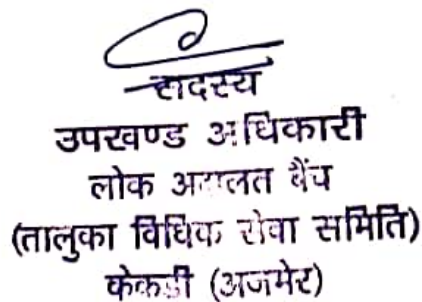 सदस्य
उपखण्ड अधिकारी
लोक अदालत बैंच
(तालुका विधिक सेवा समिति)
केकडी (अजमेर)